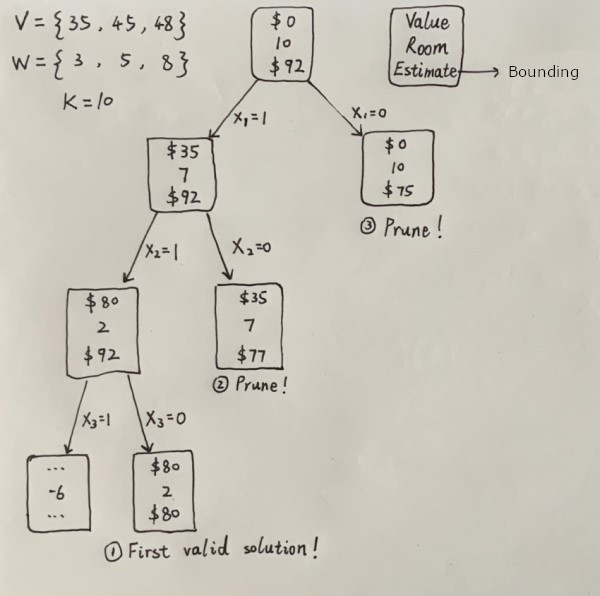 V = {35, 45, 48}
W = {3, 5, 8}
K = 10
$0
10
$92
Value
Room
Estimate
Bounding
X₁=1
X₁=0
$35
7
$92
$0
10
$75
③ Prune!
X₂=1
X₂=0
$80
2
$92
$35
7
$77
② Prune!
X₃=1
X₃=0
...
-6
...
$80
2
$80
① First valid solution!